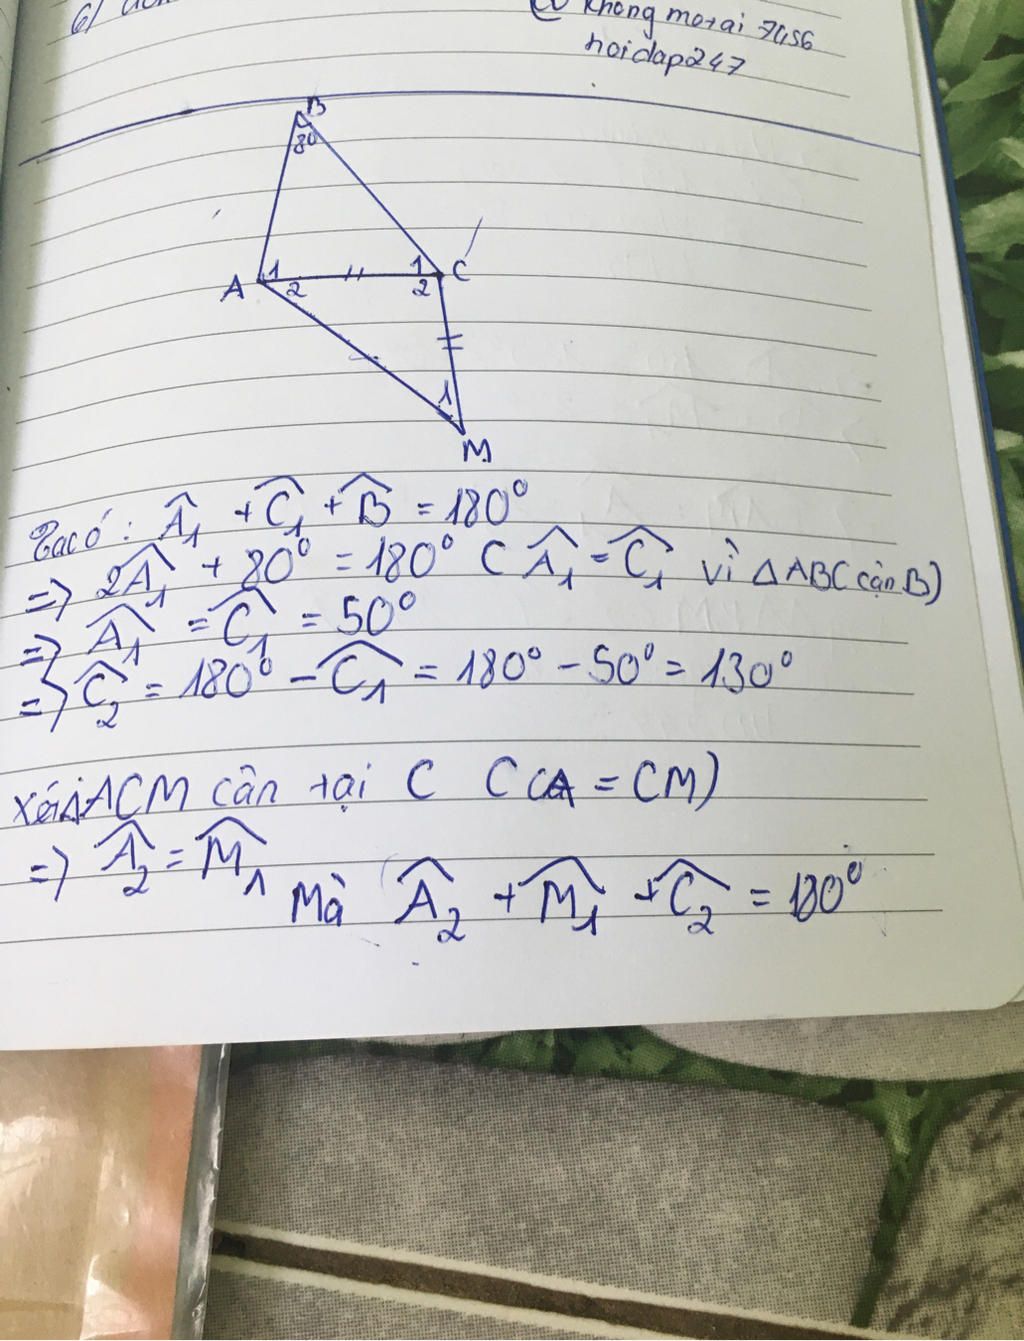 6)
@ Khong mo+ai 7456
hoidap247
B
80
A 1 2
1 2 C
1
M
Ta có : Â₁ + Ĉ₁ + B̂ = 180⁰
=> 2Â₁ + 80⁰ = 180⁰ ( Â₁ = Ĉ₁ vì ΔABC cân B)
=> Â₁ = Ĉ₁ = 50⁰
=> Ĉ₂ = 180⁰ - Ĉ₁ = 180⁰ - 50⁰ = 130⁰
Xét ΔACM cân tại C (CA = CM)
=> Â₂ = M̂₁
Mà Â₂ + M̂₁ + Ĉ₂ = 180⁰